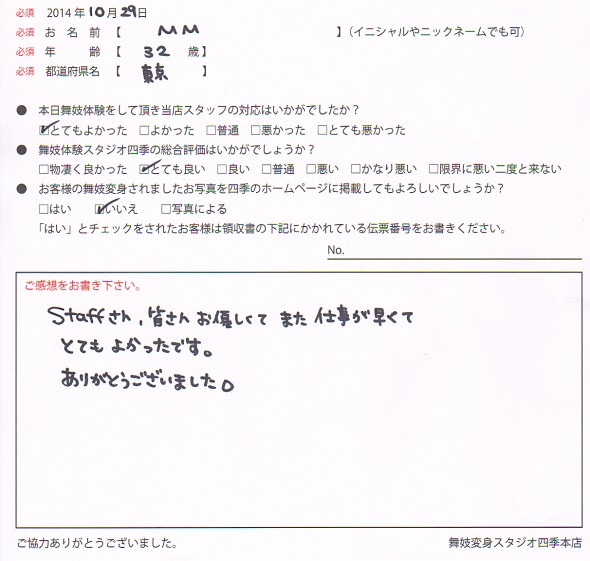 必須 2014 年 10 月 29 日
必須 お 名 前 【 MM 】（イニシャルやニックネームでも可）
必須 年 齢 【 32 歳 】
必須 都道府県名 【 東京 】
● 本日舞妓体験をして頂き当店スタッフの対応はいかがでしたか？
☑とてもよかった □よかった □普通 □悪かった □とても悪かった
● 舞妓体験スタジオ四季の総合評価はいかがでしょうか？
□物凄く良かった ☑とても良い □良い □普通 □悪い □かなり悪い □限界に悪い二度と来ない
● お客様の舞妓変身されましたお写真を四季のホームページに掲載してもよろしいでしょうか？
□はい ☑いいえ □写真による
「はい」とチェックをされたお客様は領収書の下記にかかれている伝票番号をお書きください。
No.
ご感想をお書き下さい。
Staffさん、皆さん お優しくて また 仕事が早くて
とても よかったです。
ありがとうございました。
ご協力ありがとうございました。 舞妓変身スタジオ四季本店